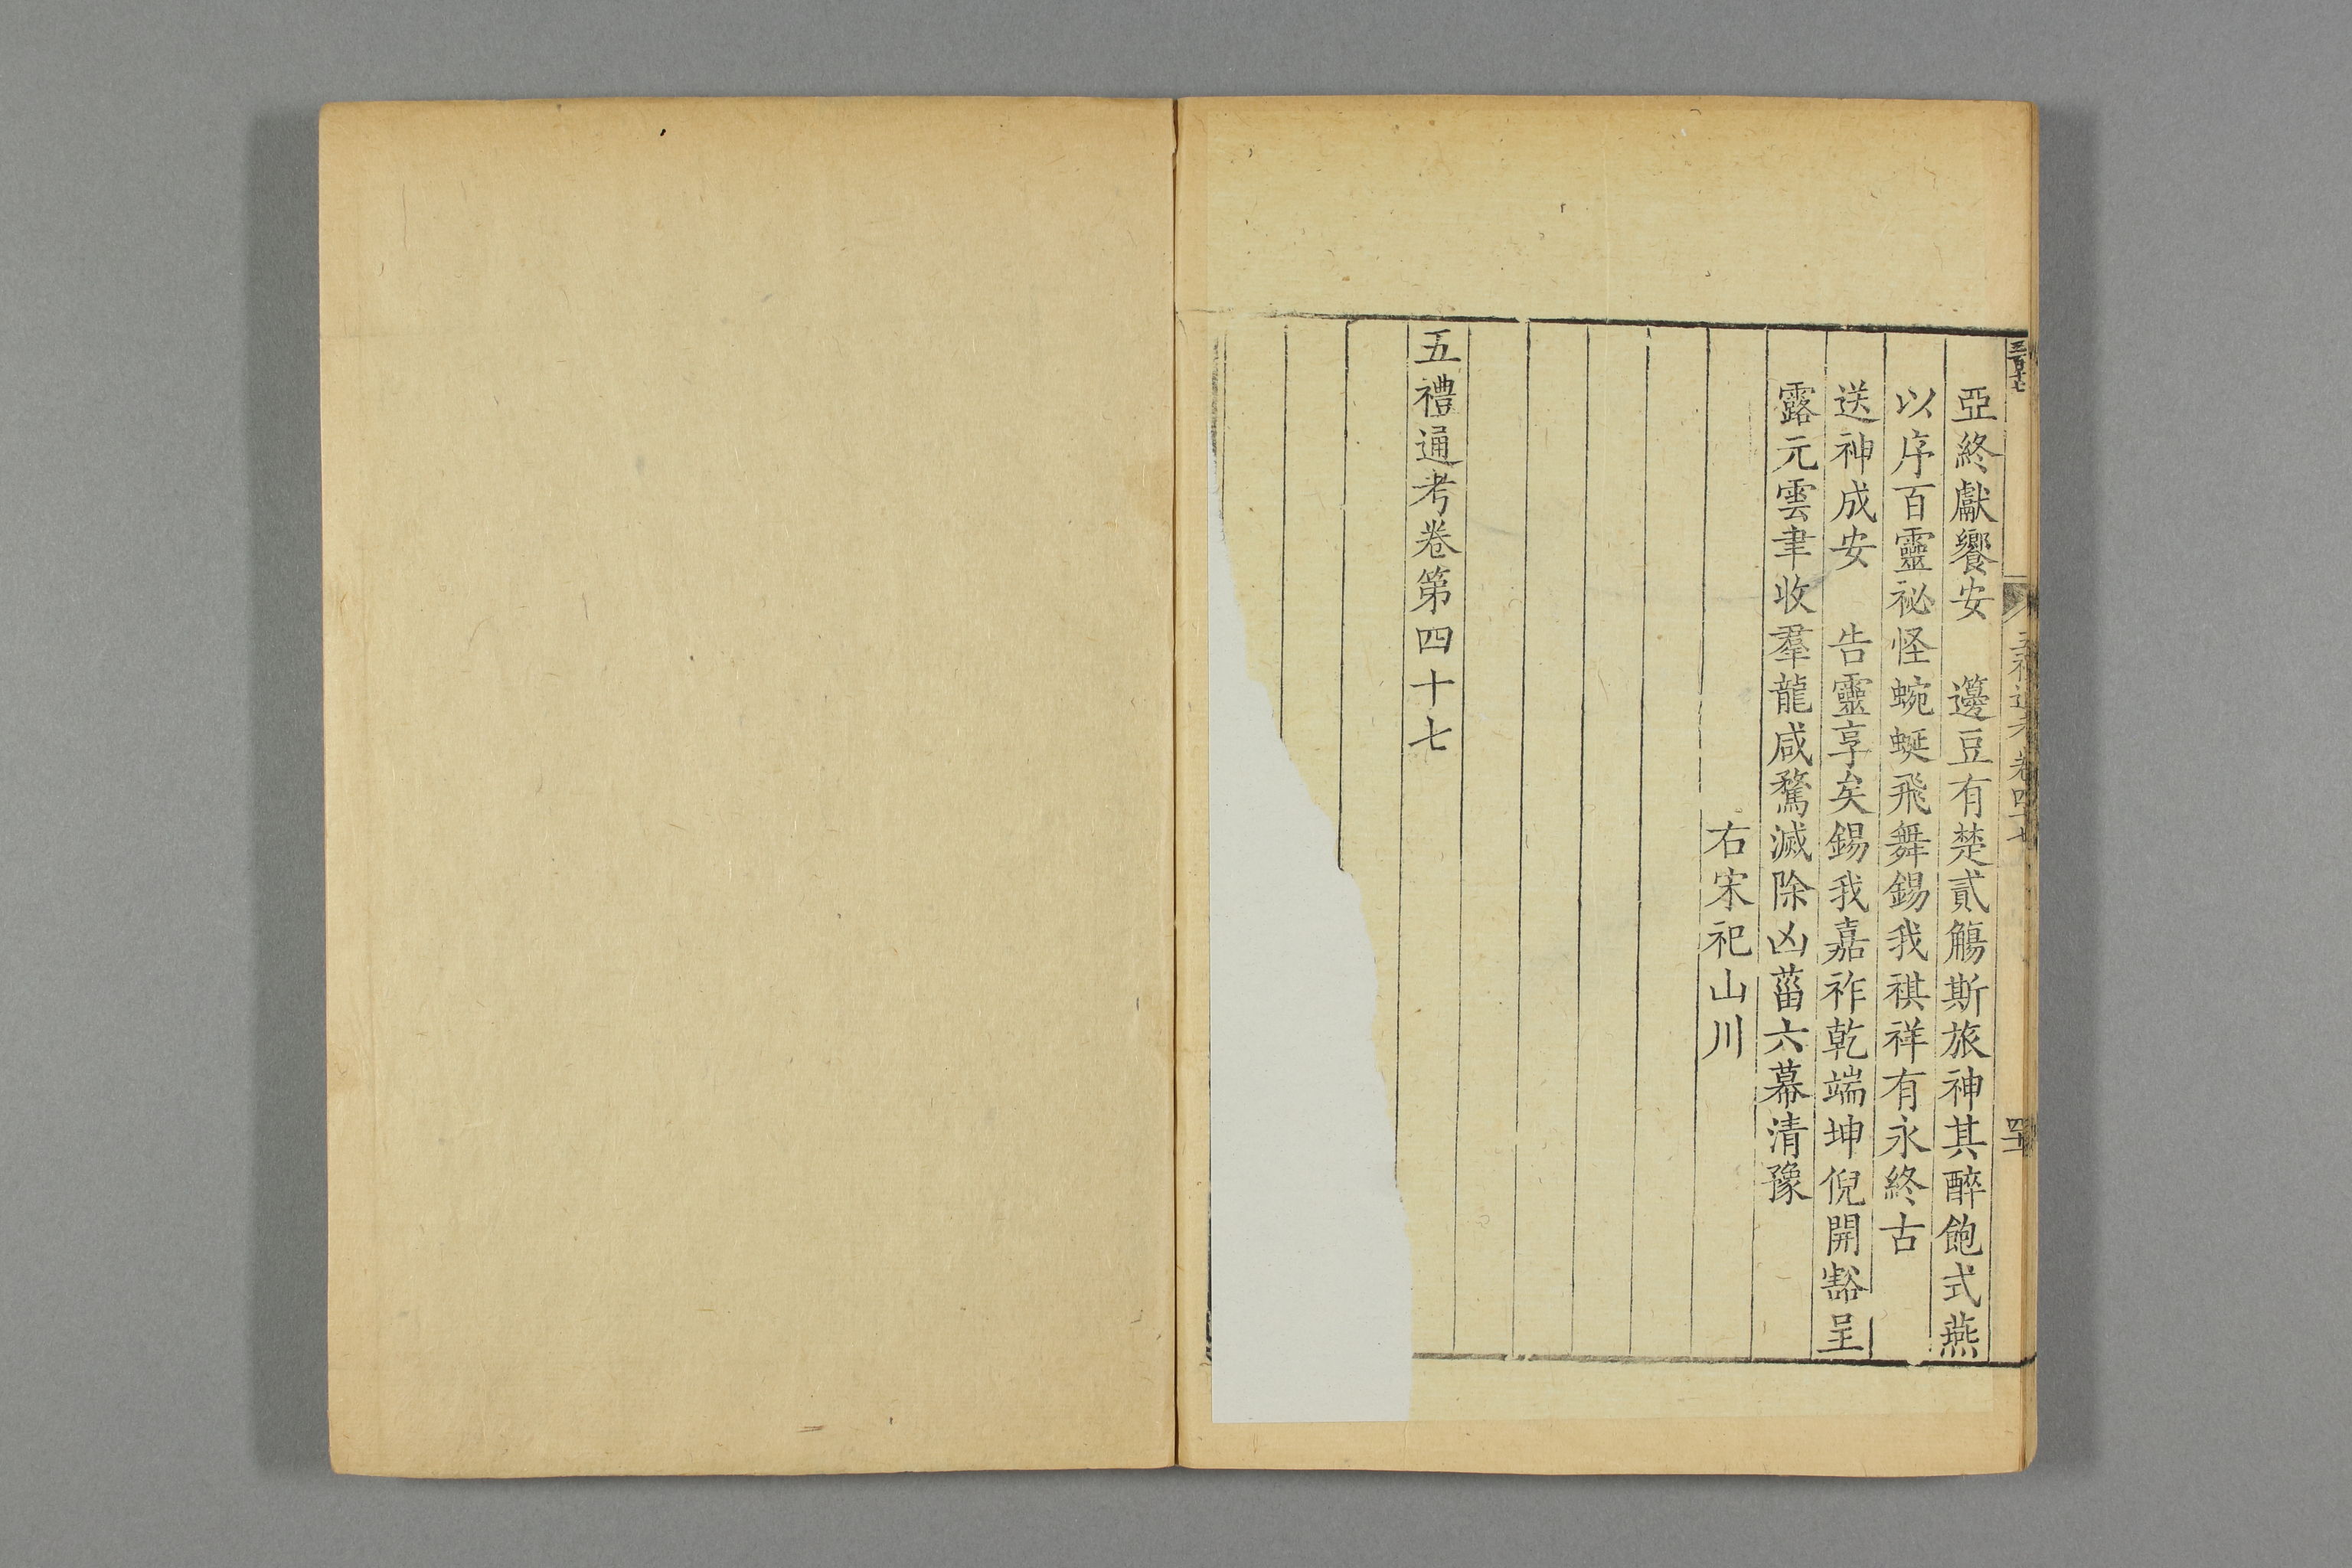 三百十七
五禮通考 卷四十七
亞終獻饗安　籩豆有楚貳觴斯旅神其醉飽式燕
以序百靈祕怪蜿蜒飛舞錫我祺祥有永終古
送神成安　告靈享矣錫我嘉祚乾端坤倪開豁呈
露元雲聿收羣龍咸騖滅除凶菑六幕清豫
右宋祀山川
五禮通考卷第四十七